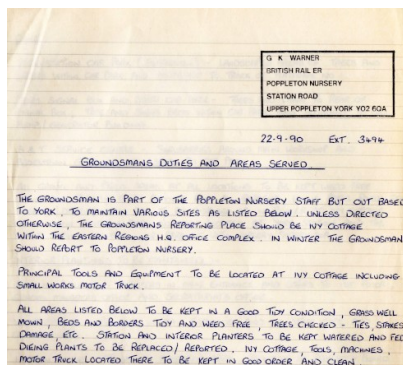 G K WARNER
BRITISH RAIL ER
POPPLETON NURSERY
STATION ROAD
UPPER POPPLETON YORK YO2 6QA
22-9-90 EXT. 3494
GROUNDSMANS DUTIES AND AREAS SERVED
THE GROUNDSMAN IS PART OF THE POPPLETON NURSERY STAFF BUT OUT BASED
TO YORK. TO MAINTAIN VARIOUS SITES AS LISTED BELOW. UNLESS DIRECTED
OTHERWISE, THE GROUNDSMANS REPORTING PLACE SHOULD BE IVY COTTAGE
WITHIN THE EASTERN REGIONS H.Q. OFFICE COMPLEX. IN WINTER THE GROUNDSMAN
SHOULD REPORT TO POPPLETON NURSERY.
PRINCIPAL TOOLS AND EQUIPMENT TO BE LOCATED AT IVY COTTAGE INCLUDING
SMALL WORKS MOTOR TRUCK.
ALL AREAS LISTED BELOW TO BE KEPT IN A GOOD TIDY CONDITION, GRASS WELL
MOWN, BEDS AND BORDERS TIDY AND WEED FREE, TREES CHECKED - TIES, STAKES
DAMAGE, ETC. STATION AND INTERIOR PLANTERS TO BE KEPT WATERED AND FED
DIEING PLANTS TO BE REPLACED / REPORTED. IVY COTTAGE, TOOLS, MACHINES,
MOTOR TRUCK LOCATED THERE TO BE KEPT IN GOOD ORDER AND CLEAN.